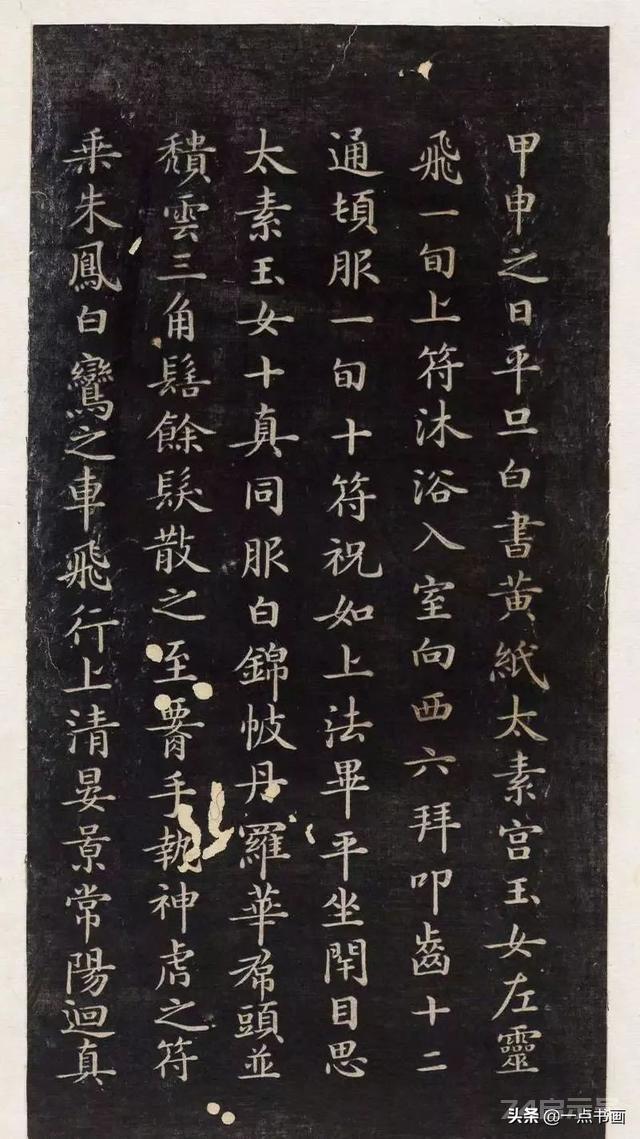 甲申之日平旦白書黃紙太素宮玉女左靈
飛一旬上符沐浴入室向西六拜叩齒十二
通頓服一旬十符祝如上法畢平坐閇目思
太素玉女十真同服白錦帔丹羅華帬頭並
穨雲三角髻餘髮散之至腰手執神虎之符
乗朱鳳白鸞之車飛行上清晏景常陽迴真
头条 @一点书画